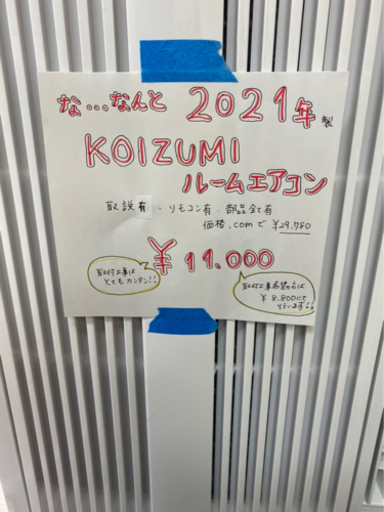 な...なんと 2021年製
KOIZUMI
ルームエアコン
取説有・リモコン有・部品全て有
価格.comで ¥29,780
¥11.000
取付工事は
とてもカンタン!!
取付工事希望の方は
¥8.800にて
行います!!